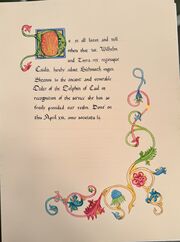 e it all know and tell
when that we, Wilhelm
and Tierra rex reginaque
Caidis, hereby admit
Shannon to the ancient and venerable
Order of the Dolphin of Caid in
recognition of the service she has so
freely provided our realm. Done on
this April xxi, anno societatis li.